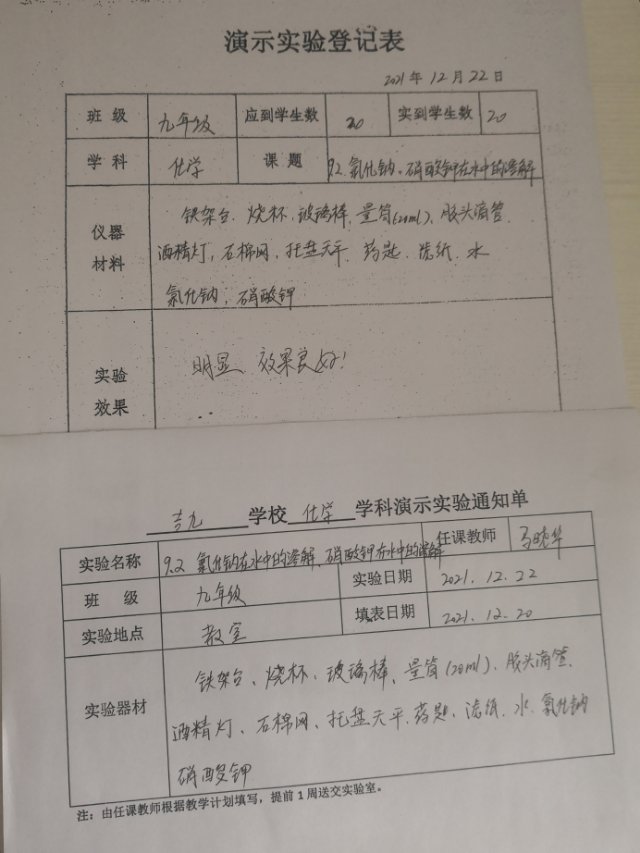 演示实验登记表
2021年12月22日
班 级 九年级 应到学生数 20 实到学生数 20
学 科 化学 课 题 9.2 氯化钠、硝酸钾在水中的溶解
铁架台、烧杯、玻璃棒、量筒(20ml)、胶头滴管、
仪器 材料 酒精灯、石棉网、托盘天平、药匙、滤纸、水
氯化钠、硝酸钾
实验 效果 明显、效果良好!
吉九 学校 化学 学科演示实验通知单
实验名称 9.2 氯化钠在水中的溶解、硝酸钾在水中的溶解 任课教师
班 级 九年级 实验日期 2021.12.22
实验地点 教室 填表日期 2021.12.20
铁架台、烧杯、玻璃棒、量筒(20ml)、胶头滴管、
实验器材 酒精灯、石棉网、托盘天平、药匙、滤纸、水、氯化钠
硝酸钾
注:由任课教师根据教学计划填写,提前1周送交实验室。